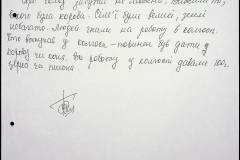 кого була корова. Сім'ї були великі, землі
небагато. Людей гнали на роботу в колгосп.
Хто вступав у колгосп – повинен був дати
корову чи коня. За роботу у колгоспі давали 100г.
зерна за